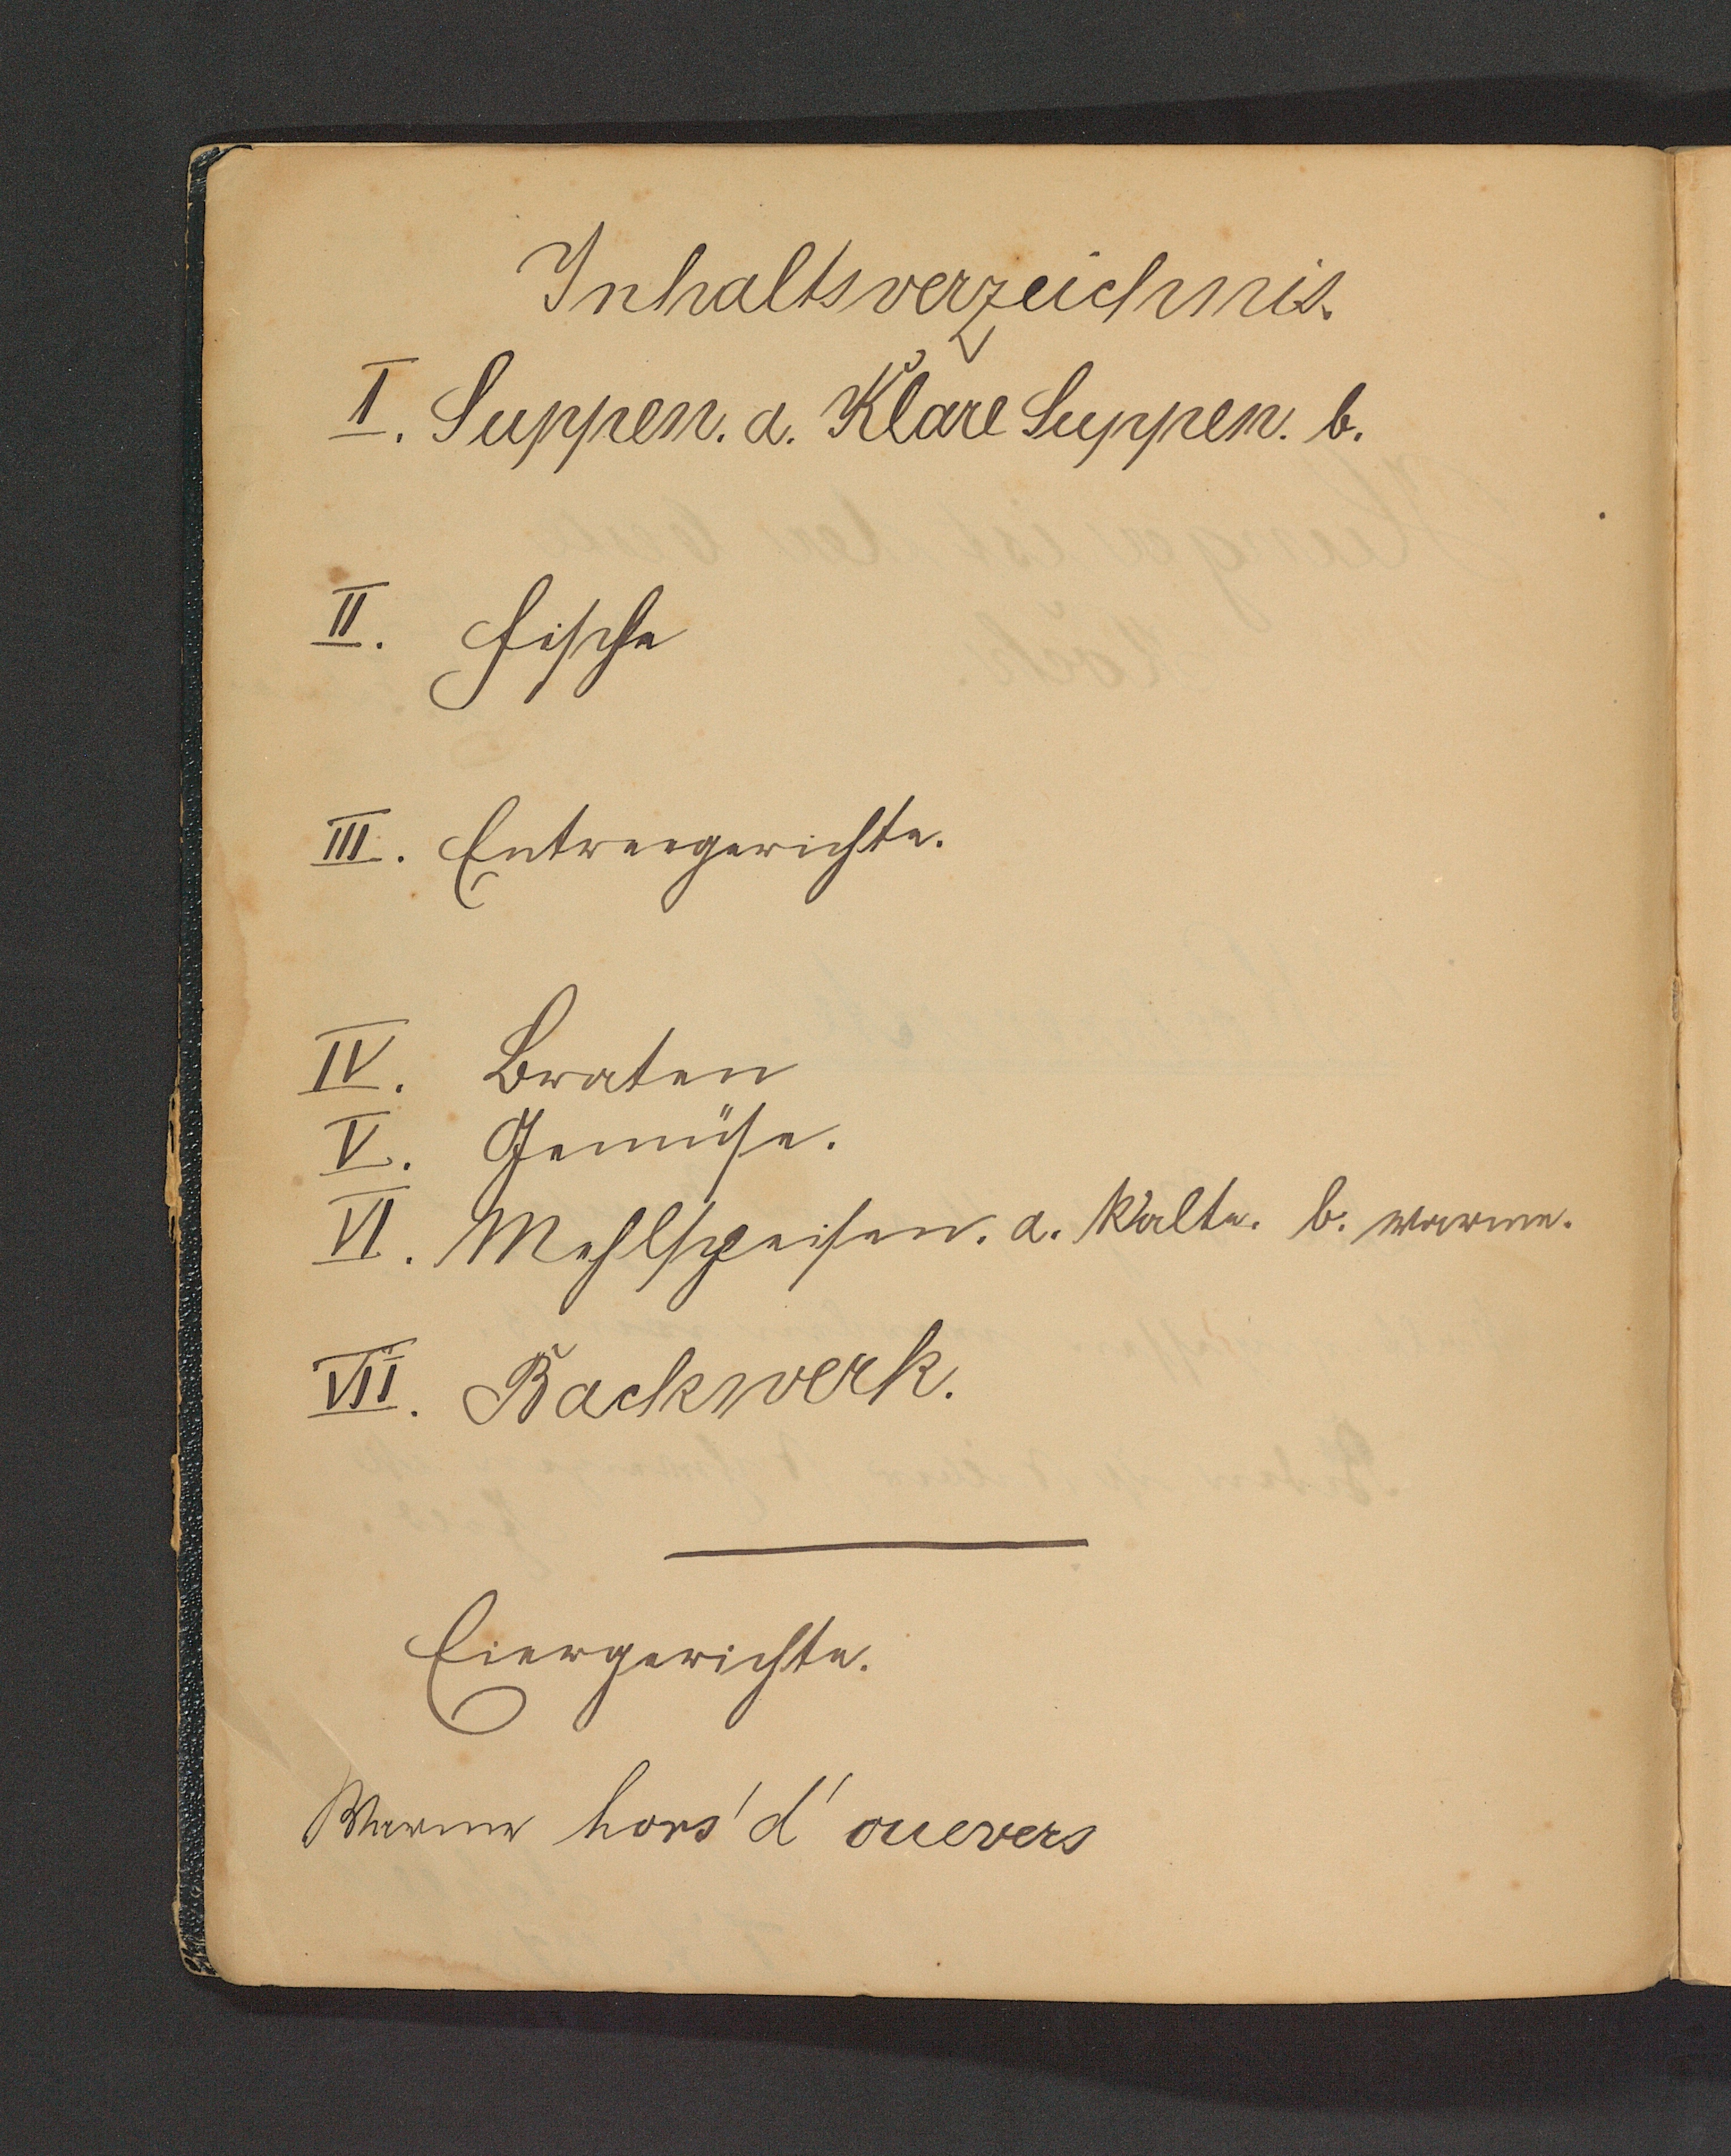 Inhaltsverzeichnis.
I. Suppen. a. Klare Suppen. b.
II. Fische
III. Entreegerichte.
IV. Braten
V. Gemüse.
VI. Mehlspeisen. a. Kalte. b. warme.
VII. Backwerk.
Eiergerichte.
Warme hors'd'ouevers